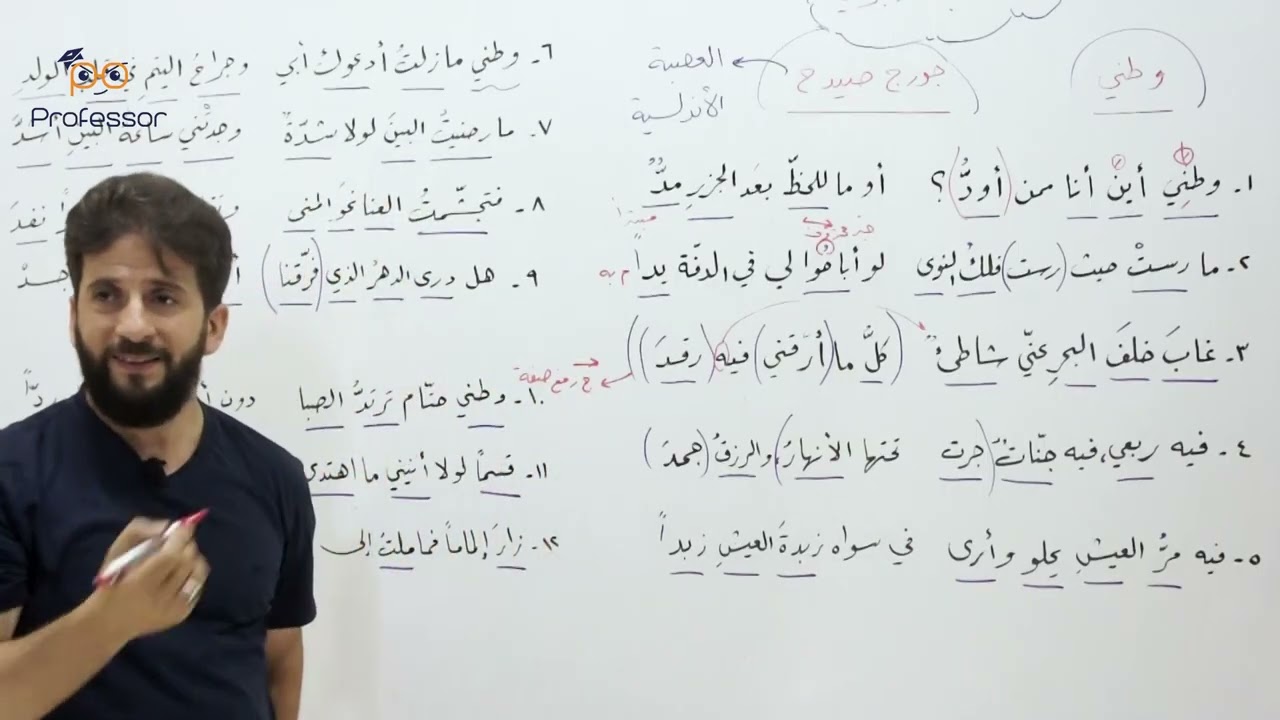 وطني
جورج صيدح
العصبة
الأندلسية
١- وطنِيَ أينَ أنا ممن أودُّ؟ أو ما للحظّ بعَد الجزرِ مدُّ
مبتدأ
خبر
٢- ما رستْ حيث (رست) فلكُ النوى لو أباحوا لي في الدفّة يداً
م به
٣- غابَ خلفَ البحرِ عنّي شاطئٌ (كلُّ ما (أرّقني) فيه (رقدَ))
ج رفع صفة
٤- فيه ربعي، فيه جنّاتٌ (جرت تحتها الأنهارُ) والرزقُ (جمدَ)
٥- فيه مرُّ العيشِ يحلو وأرى في سواه زبدةَ العيشِ زبداً
٦- وطني مازلتُ أدعوك أبي وجراحُ اليتمِ في قلب الولدِ
٧- ما رضيتُ البينَ لولا شدّةٌ وجدتْني ساعةَ البينِ أشدَّ
٨- فتجشّمتُ العنا نحوَ المنى نفدَ
٩- هل درى الدهرُ الذي (فرّقنا)
١٠- وطني حتّام تَرتدُّ الصبا دون
١١- قسماً لولا أنيني ما اهتدى
١٢- زارَ إلماماً فما ملتُ إلى
Professor